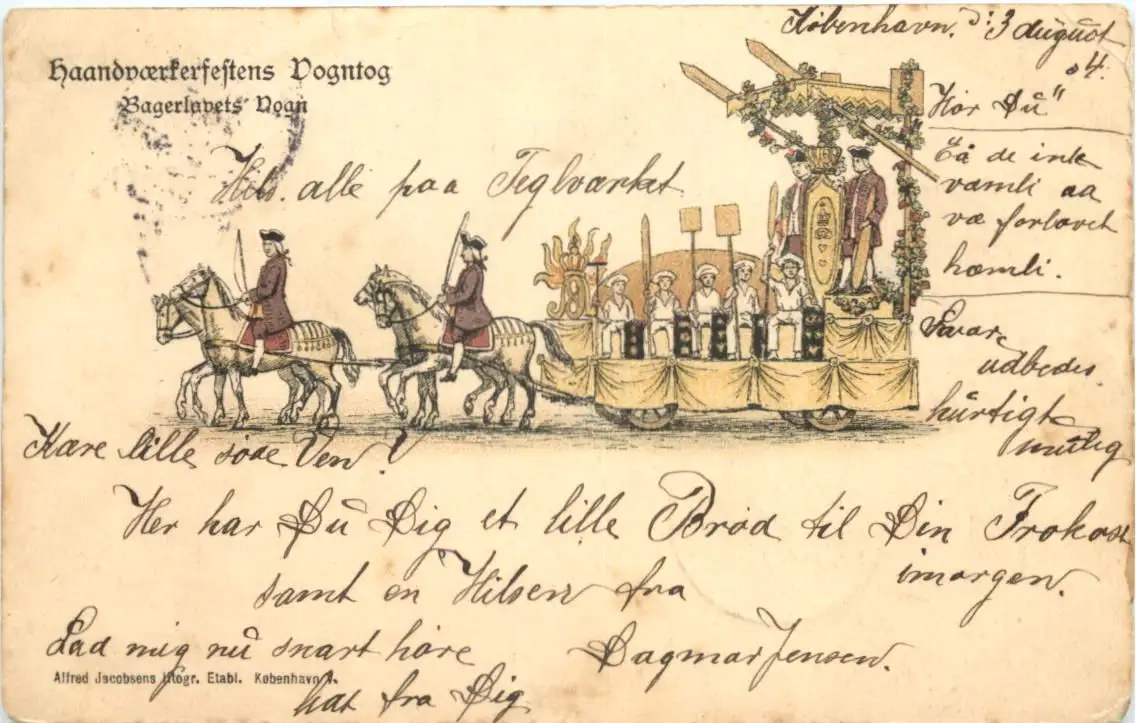 Haandværkerfestens Vogntog
Bagerlavets Vogn
København. d: 3 august
04.
Hør Du"
Hils. alle paa Teglværket
Eå de ink
væmli aa
væ forlovet
hæmli.
Svar
udbedes
hurtigt
mulig
Kære lille søde Ven!
Her har Du Dig et lille Brød til Din Frokost
imorgen.
samt en Hilsen fra
Dagmar Jensen.
Lad mig nu snart høre
Alfred Jacobsens litogr. Etabl. København
fra Dig